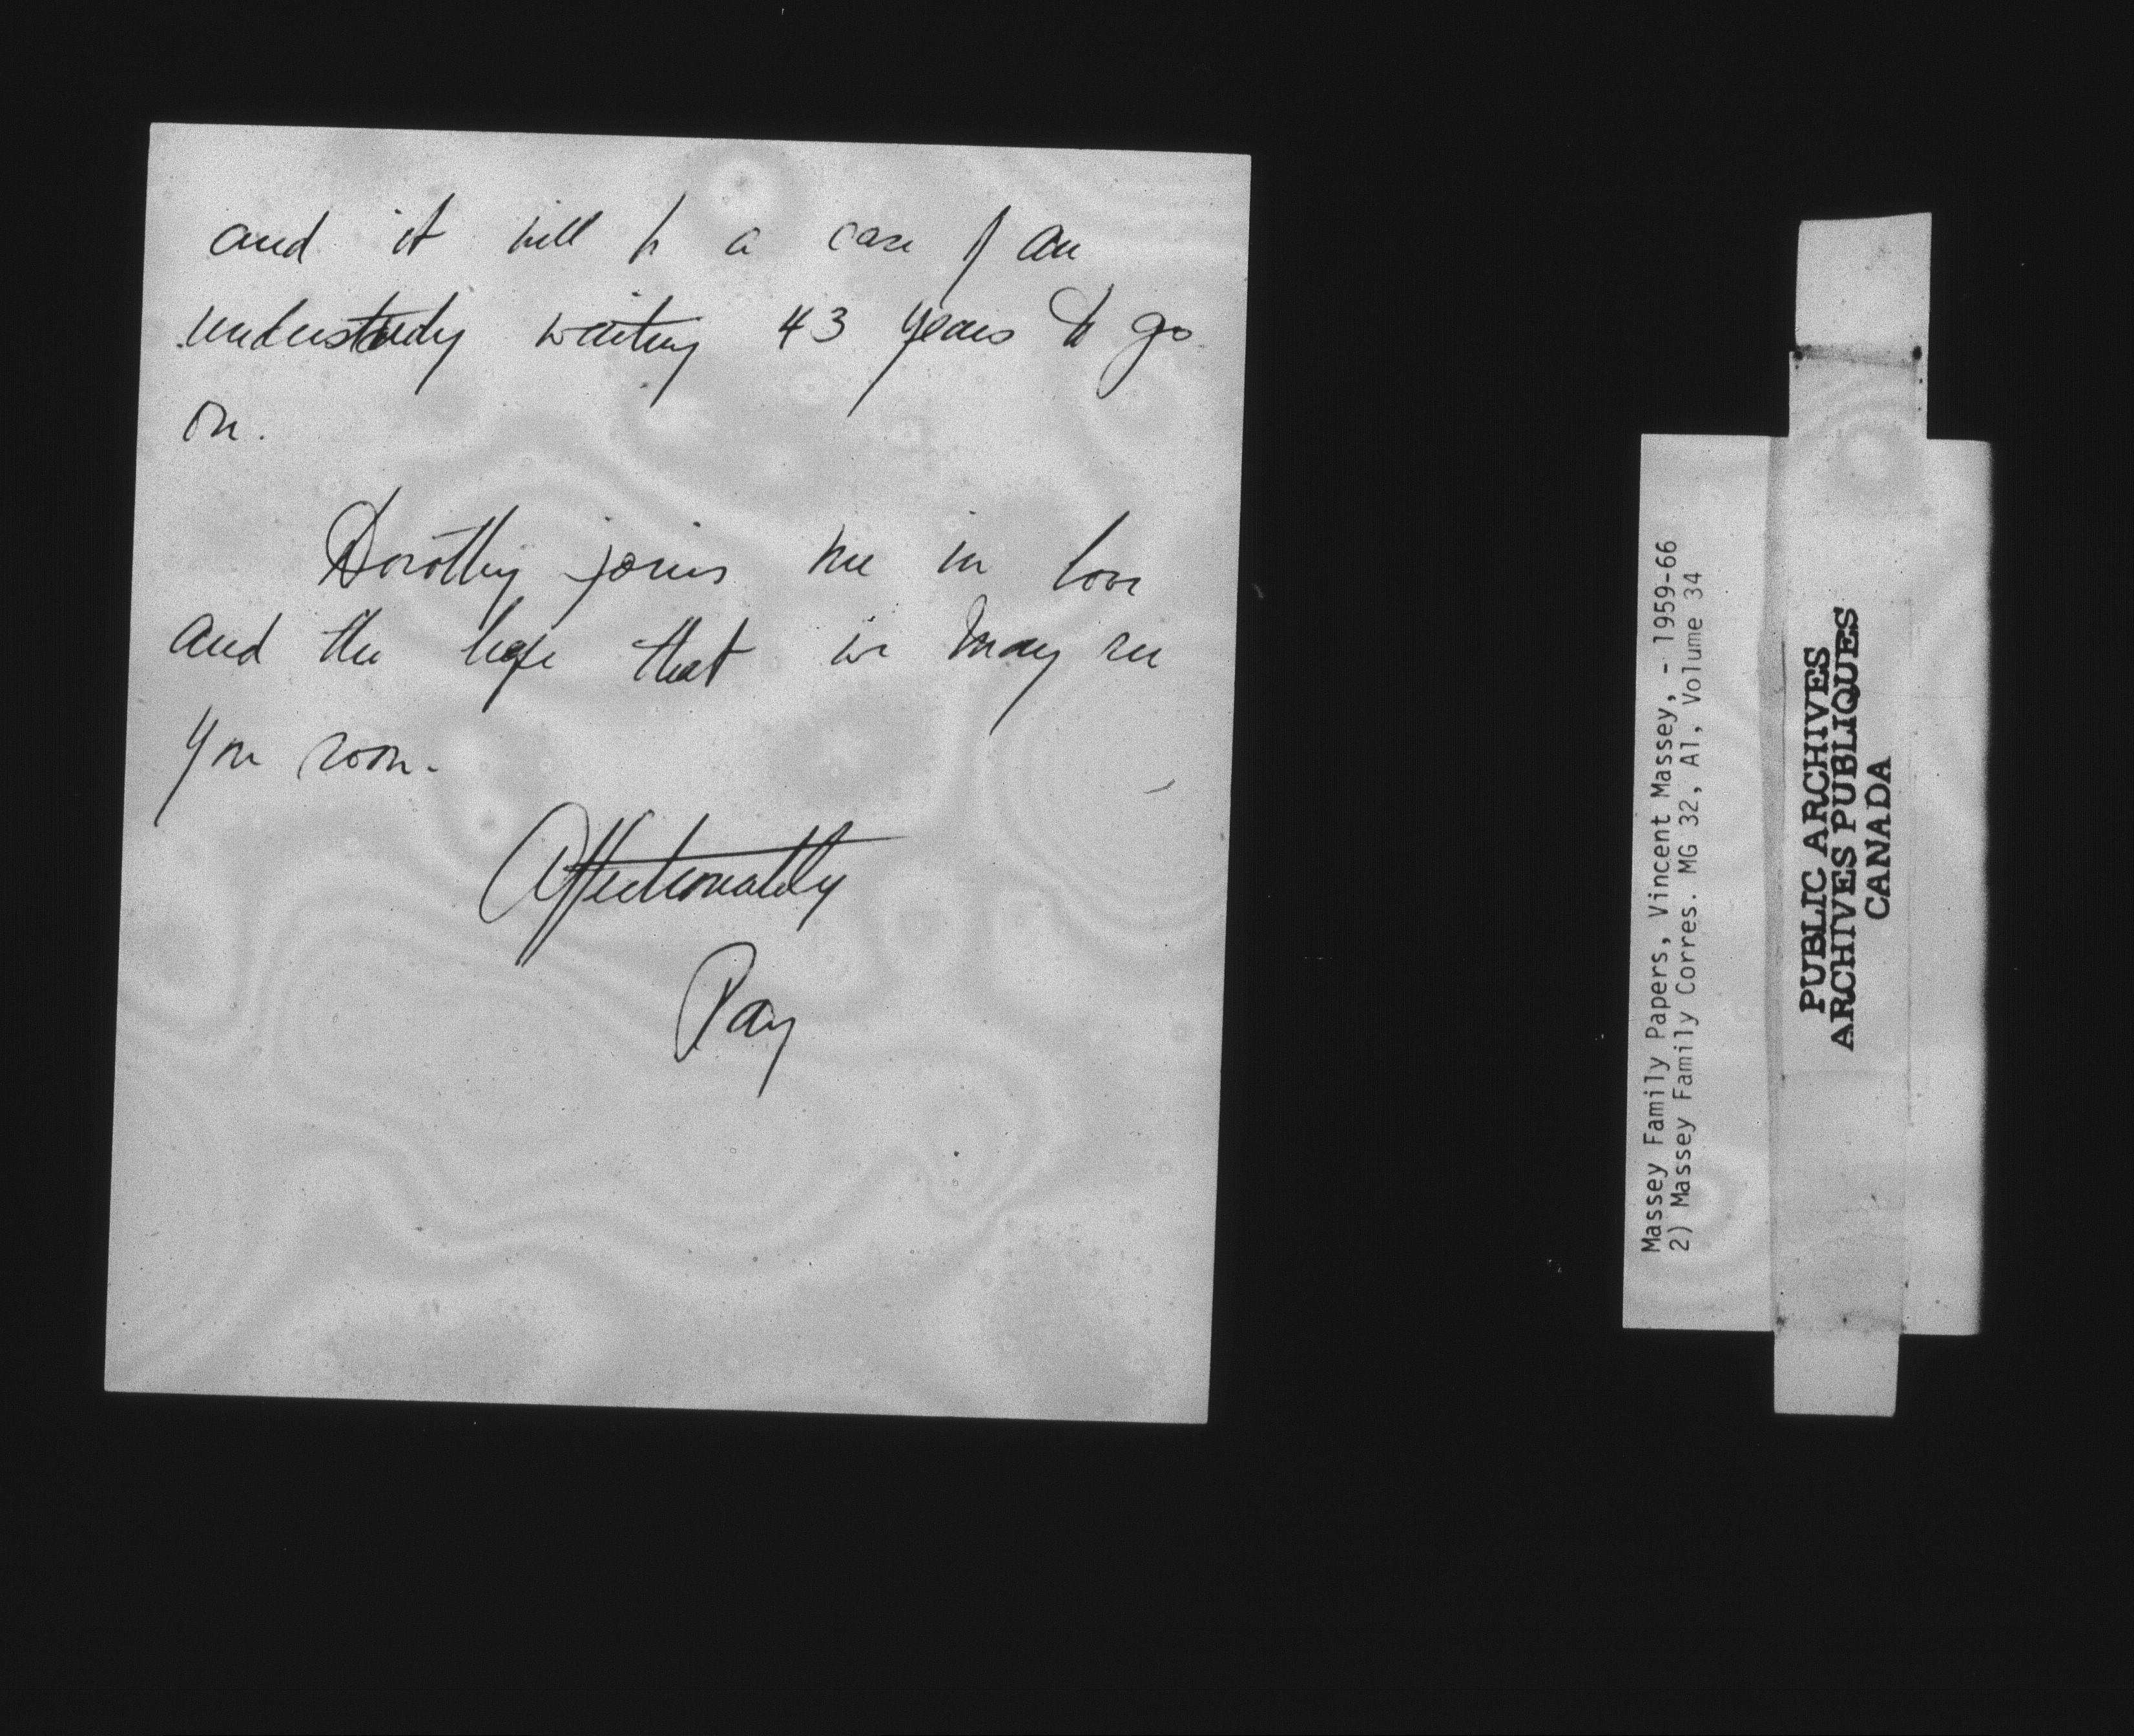 and it will be a case of an
understudy waiting 43 years to go
on.
Dorothy joins me in love
and the hope that we may see
you soon.
Affectionately
Ray
Massey Family Papers, Vincent Massey, - 1959-66
2) Massey Family Corres. MG 32, A1, Volume 34
PUBLIC ARCHIVES
ARCHIVES PUBLIQUES
CANADA